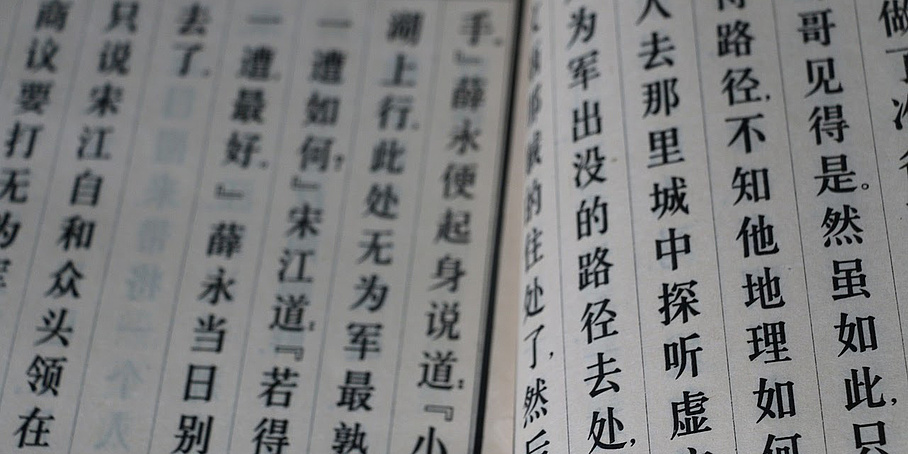 做
哥见得是。然虽如此,只
路径,不知他地理如何
人去那里城中探听虚
为军出没的路径去处,
的往处了,然后
手。』薛永便起身说道:『小
湖上行,此处无为军最熟
一遭如何?』宋江道:『若得
一遭,最好。』薛永当日别
去了。
只说宋江自和众头领在
商议要打无为军